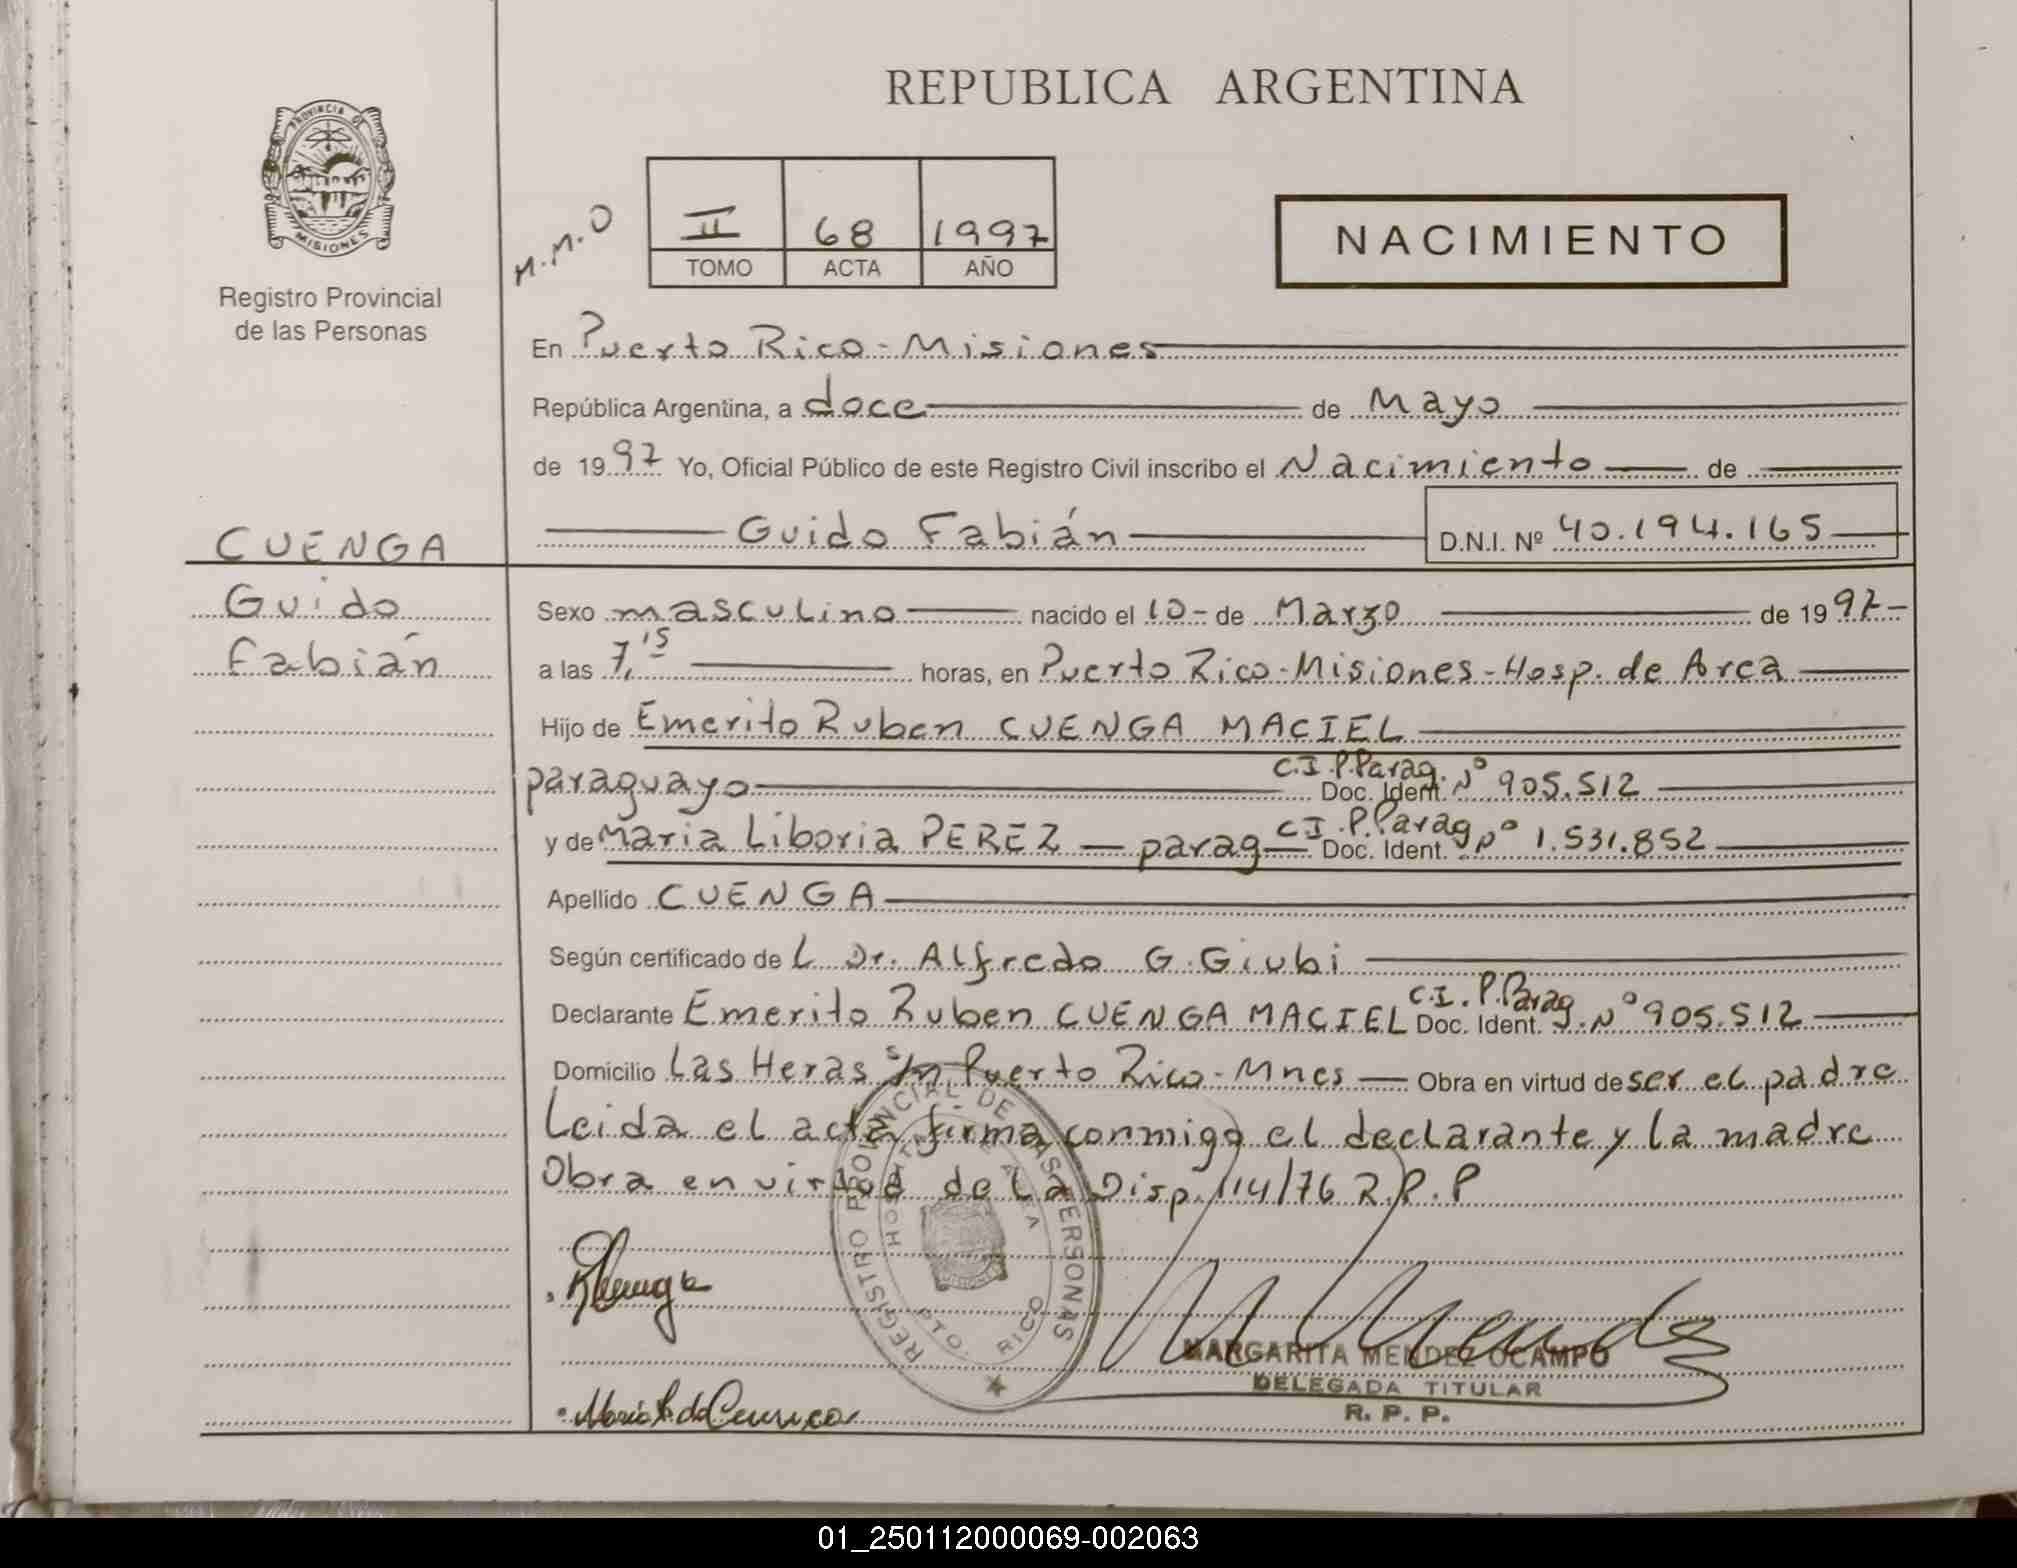 REPUBLICA ARGENTINA
PROVINCIA DE
MISIONES
Registro Provincial
de las Personas
M.M.O
II 68 1997
TOMO ACTA AÑO
NACIMIENTO
En Puerto Rico - Misiones
República Argentina, a doce de Mayo
de 1997 Yo, Oficial Público de este Registro Civil inscribo el Nacimiento de
Guido Fabián D.N.I. Nº 40.194.165
CUENGA
Guido
Fabián
Sexo masculino nacido el 10 - de Marzo de 1997 -
a las 7,15 horas, en Puerto Rico - Misiones - Hosp. de Area
Hijo de Emerito Ruben CUENGA MACIEL
paraguayo C.I.P.Parag. Doc. Ident. Nº 905.512
y de Maria Liboria PEREZ — parag — C.I.P.Parag Doc. Ident. Nº 1.531.852
Apellido CUENGA
Según certificado de L Dr. Alfredo G. Giubi
Declarante Emerito Ruben CUENGA MACIEL C.I.P.Parag. Doc. Ident. Nº 905.512
Domicilio Las Heras s/n Puerto Rico - Mnes — Obra en virtud de ser el padre
Leida el acta firma conmigo el declarante y la madre
Obra en virtud de la Disp. 114/76 R.P.P
REGISTRO PROVINCIAL DE LAS PERSONAS
HOSPITAL DE AREA
PTO. RICO
MARGARITA MENDEZ OCAMPO
DELEGADA TITULAR
R. P. P.
01_250112000069-002063